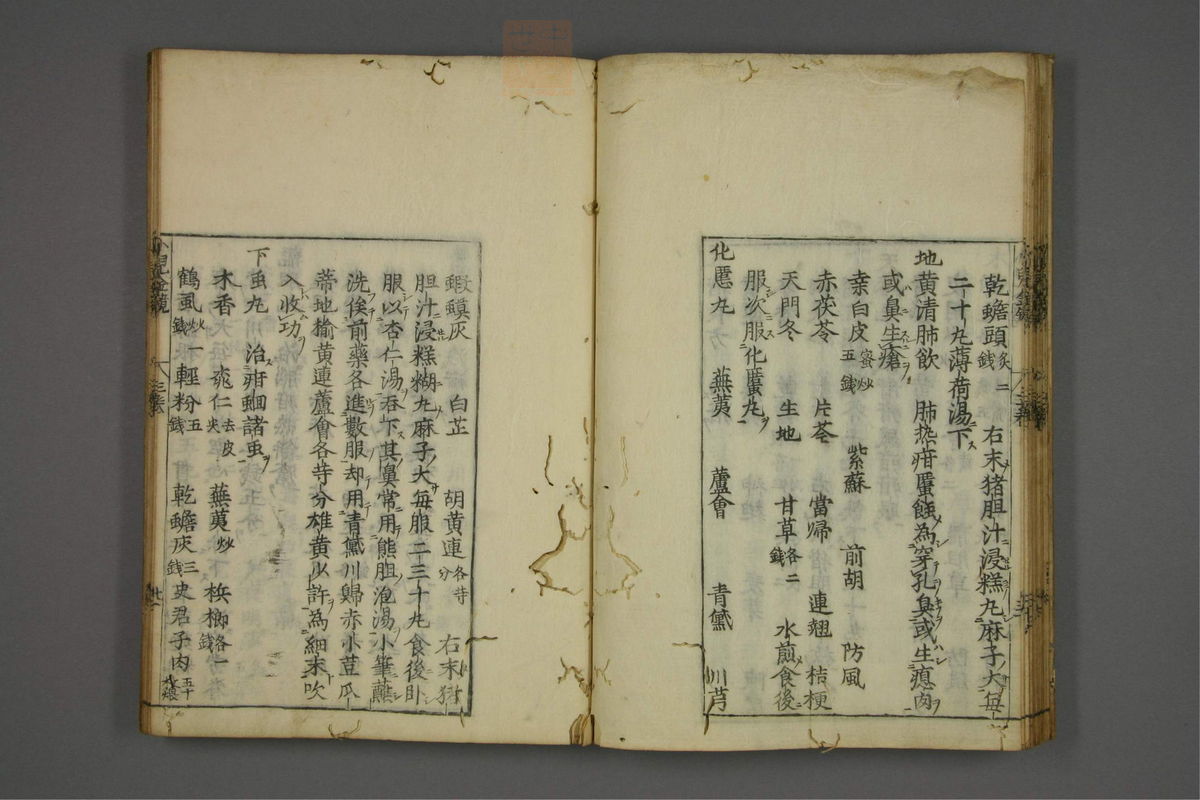 乾蟾頭炙二錢　右末猪胆汁浸糕丸麻子大每
二十丸薄荷湯下
地黄清肺飲　肺热疳䘌蝕為穿孔臭或生瘜肉
或臭生瘡
桒白皮蜜炒五錢　紫蘇　前胡　防風
赤茯苓　片芩　當帰　連翹　桔梗
天門冬　生地　甘草各二錢　水煎食後
服次服化䘌丸
化䘌丸　蕪荑　蘆會　青黛　川芎
蝦蟆灰　白芷　胡黄連各等分　右末猪
胆汁浸糕糊丸麻子大每服二三十丸食後卧
服以杏仁湯吞下其鼻常用熊胆泡湯小筆蘸
洗俟前藥各進數服却用青黛川歸赤小荳瓜
蒂地榆黄連蘆會各等分雄黄少許為細末吹
入收功
下虫丸　治疳蛔諸虫
木香　桃仁去皮尖　蕪荑炒　梹榔各一錢
鶴虱炒一錢　輕粉五錢　乾蟾灰三錢　史君子肉五十